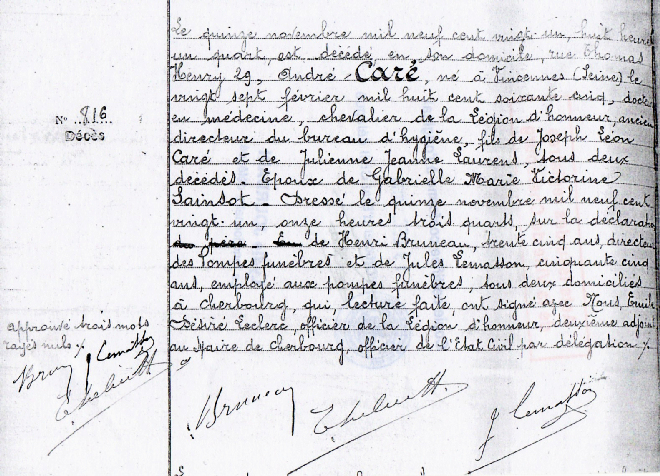 Le quinze novembre mil neuf cent vingt un, huit heures
un quart, est décédé, en son domicile, rue Thomas
Henry 29, André Caré, né à Vincennes (Seine) le
vingt sept février mil huit cent soixante cinq, docteur
en médecine, chevalier de la Légion d'honneur, ancien
directeur du bureau d'hygiène, fils de Joseph Léon
Caré et de Julienne Jeanne Laurens, tous deux
décédés. Epoux de Gabrielle Marie Victorine
Sainsot. Dressé le quinze novembre mil neuf cent
vingt un, onze heures trois quarts, sur la déclaration
de Henri Bruneau, trente cinq ans, directeur
des Pompes funèbres et de Jules Lemasson, cinquante cinq
ans, employé aux pompes funèbres, tous deux domiciliés
à Cherbourg, qui, lecture faite, ont signé avec Nous, Emile
Désiré Leclerc, officier de la Légion d'honneur, deuxième adjoint
au Maire de Cherbourg, officier de l'Etat Civil par délégation
N° 816
Décès
approuvé trois mots
rayés nuls
J Lemasson
J Lemasson